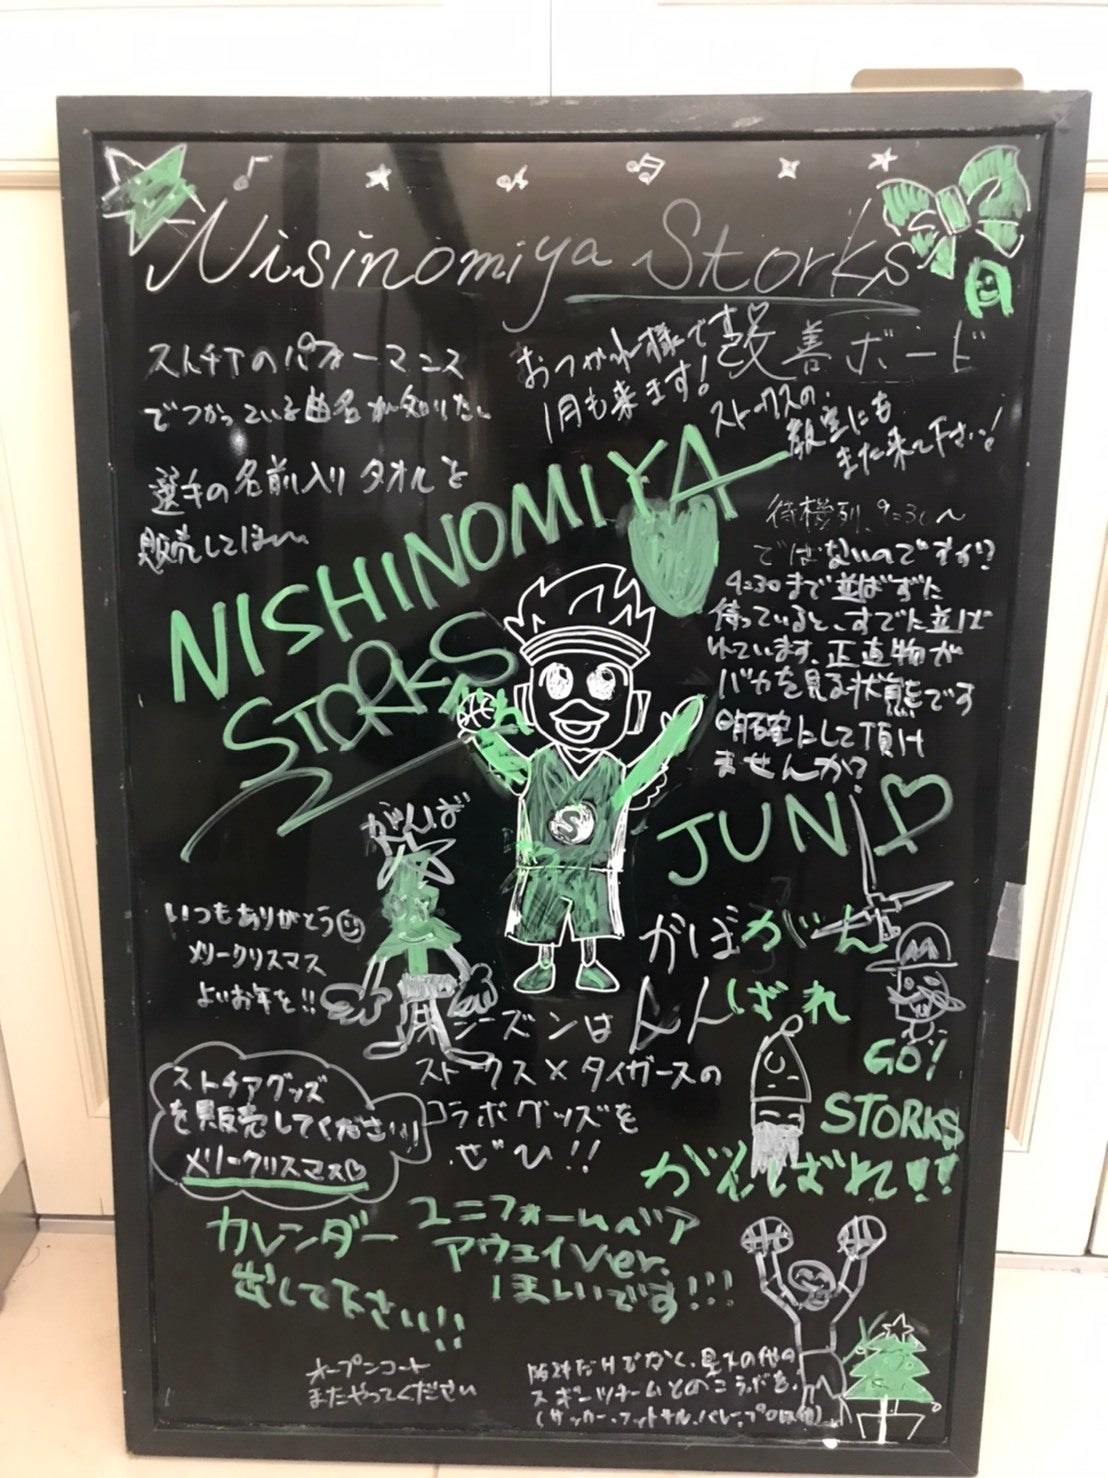 Nisinomiya Storks
改善ボード
ストチアのパフォーマンス
でつかっている曲名が知りたい
選手の名前入りタオルを
販売してほしい
おつかれ様です
1月も来ます!
ストークスの
教室にも
また来て下さい!
NISHINOMIYA
STORKS
待機列、9:30~
ではないのですか?
9:30まで並ばずに
待っていると、すでに並ば
れています。正直物が
バカを見る状態です
明確にして頂け
ませんか?
JUN
がんば
れ
いつもありがとう
メリークリスマス
よいお年を!!
がばがん
んんばれ
来シーズンは
ストークス×タイガースの
コラボグッズを
ぜひ!!
GO!
STORKS
がんばれ!!
ストチアグッズ
を販売してください!
メリークリスマス
カレンダー
出して下さい!!
ユニフォームベア
アウェイver.
ほしいです!!!
オープンコート
またやってください
阪神だけでなく、
の他の
スポーツチームとのコラボを。
(サッカー、フットサル、バレー、プロ